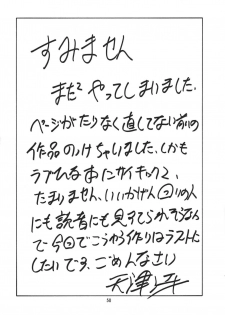 すみません
またまた やってしまいました。
ページがたりなく直してない前の
作品のっけちゃいました。しかも
ラブひな本にサイキック2
たまりません。いいかげん
にも読者にも見すてられそうなん
で今回でこうゆう作りはラストに
したいです。ごめんなさい
50